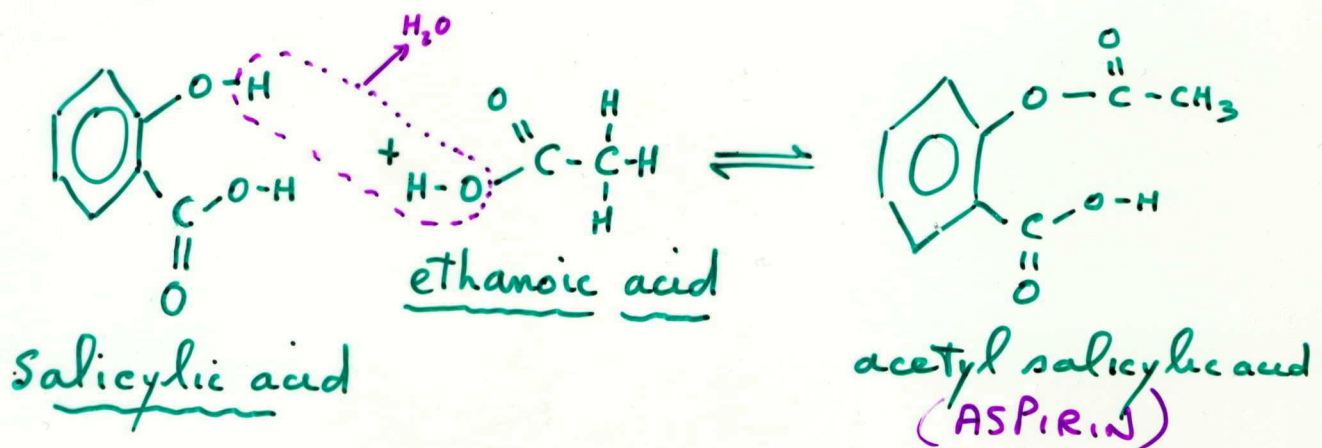 H₂O
O-H
+
O
H
H-O
C-C-H
H
⇌
O-H
C
O
O
O-C-CH₃
O-H
C
O
ethanoic acid
salicylic acid
acetyl salicylic acid
(ASPIRIN)